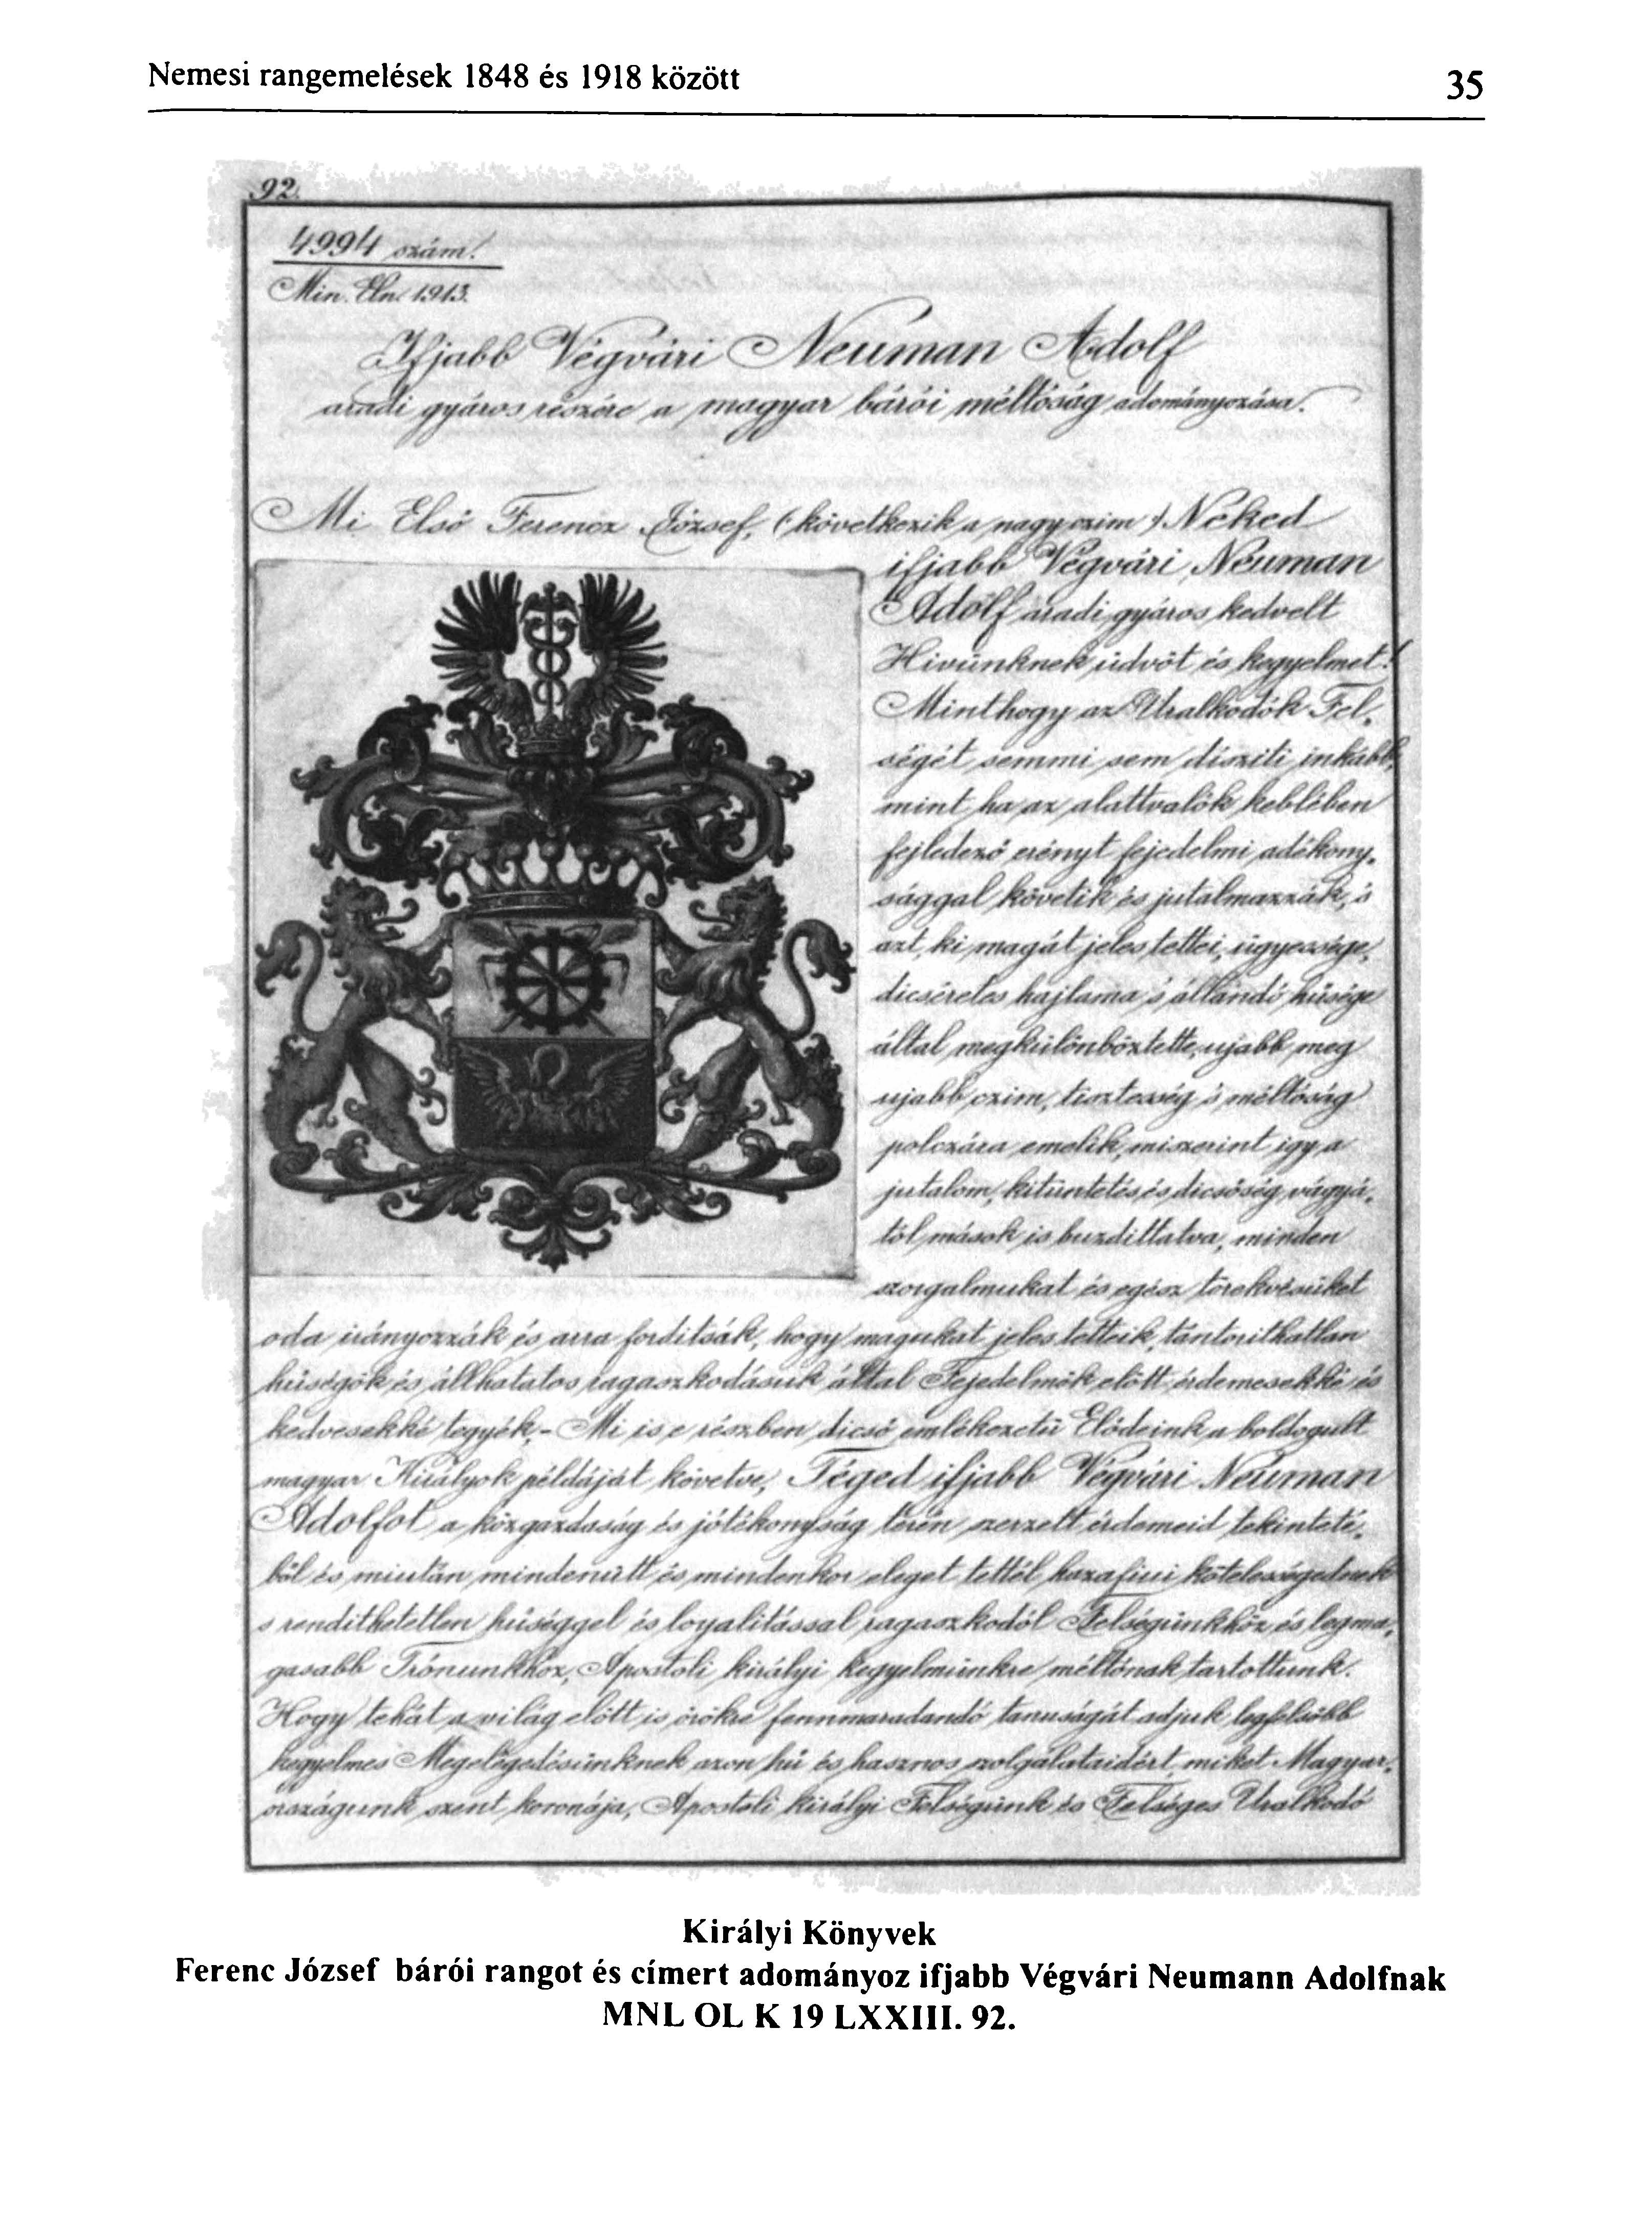 Nemesi rangemelések 1848 és 1918 között
35
92.
4994 szám.
Min. Eln. 1913.
Ifjabb Végvári Neuman Adolf
aradi gyáros részére a magyar bárói méltóság adományozása.
Mi Első Ferencz József, (:következik a nagy czim:) Neked
ifjabb Végvári Neuman
Adolf aradi gyáros kedvelt
Hivünknek üdvöt és kegyelmet!
Minthogy az Uralkodók Fel-
ségét semmi sem disziti inkább,
mint ha az alattvalók keblében
fejledező erényt fejedelmi adékony-
sággal követik és jutalmazzák, s
azt, ki magát jeles tettei, ügyessége,
dicséretes hajlama s állandó hűsége
által megkülönböztette, ujabb meg
ujabb czim, tisztesség s méltóság
polczára emelik, miszerint igy a
jutalom, kitüntetés és dicsőség vágyá-
tól mások is buzdittatva, minden
szorgalmukat és egész törekvésüket
oda irányozzák és arra forditsák, hogy magukat jeles tetteik, tántorithatlan
hűségök és állhatatos ragaszkodásuk által Fejedelmök előtt érdemesekké és
kedvesekké tegyék, - Mi is e részben dicső emlékezetű Elődeink a boldogult
magyar Királyok példáját követve, Téged ifjabb Végvári Neuman
Adolfot a közgazdaság és jótékonyság terén szerzett érdemeid tekinteté-
ből és miután mindenütt és mindenkor eleget tettél hazafiui kötelességednek
s rendithetetlen hűséggel és loyalitással ragaszkodól Felségünkhöz és legma-
gasabb Trónunkhoz, Apostoli királyi kegyelmünkre méltónak tartottunk.
Hogy tehát a világ előtt is örökre fennmaradandó tanuságát adjuk legfelsőbb
kegyelmes Megelégedésünknek azon hű és hasznos szolgálataidért, miket Magyar-
országunk szent koronája, Apostoli királyi Felségünk és Felséges Uralkodó
Királyi Könyvek
Ferenc József bárói rangot és címert adományoz ifjabb Végvári Neumann Adolfnak
MNL OL K 19 LXXIII. 92.